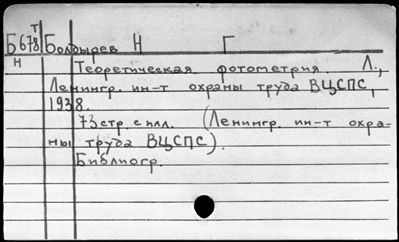 Б678т Болдырев Н Г
н Теоретическая фотометрия. Л.,
Ленингр. ин-т охраны труда ВЦСПС,
1938.
73 стр. с илл. (Ленингр. ин-т охра-
ны труда ВЦСПС).
Библиогр.